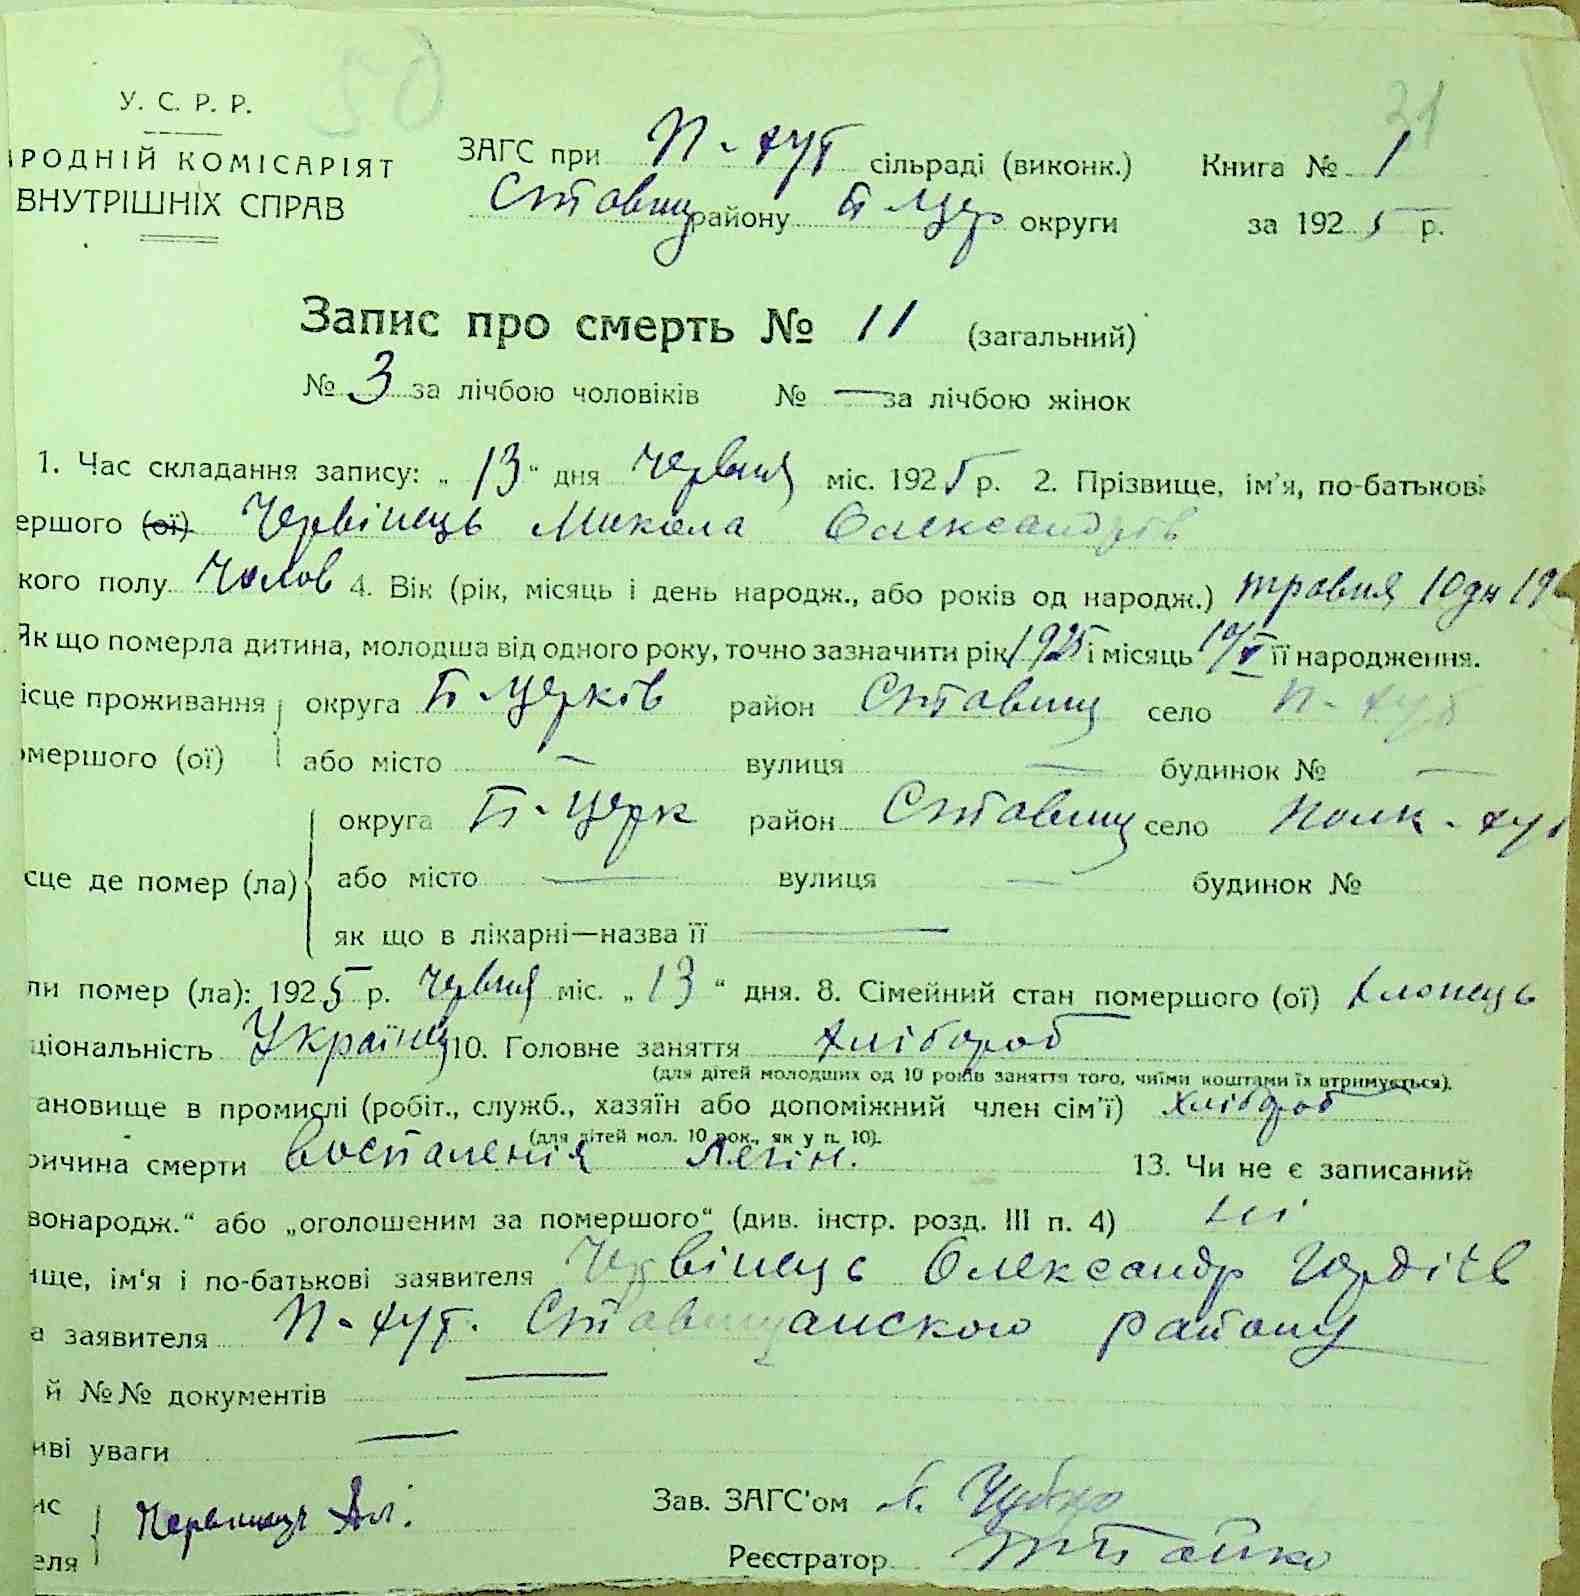 50
31
У. С. Р. Р.
РОДНІЙ КОМІСАРІЯТ
ВНУТРІШНІХ СПРАВ
ЗАГС при П-хут сільраді (виконк.) Книга № 1
Ставищ району Б Цер округи за 1925 р.
Запис про смерть № 11 (загальний)
№ 3 за лічбою чоловіків № — за лічбою жінок
1. Час складання запису: „13“ дня червня міс. 1925 р. 2. Прізвище, ім'я, по-батькові
ершого (ої) Червінець Микола Олександрів
кого полу Чолов 4. Вік (рік, місяць і день народж., або років од народж.) травня 10 дн 19
Як що померла дитина, молодша від одного року, точно зазначити рік 1925 і місяць 10/V її народження.
ісце проживання округа Б-Церків район Ставищ село П-хут
омершого (ої) або місто — вулиця — будинок № —
округа Б-Церк район Ставищ село Полк-хут
сце де помер (ла) або місто — вулиця — будинок №
як що в лікарні—назва її —
ли помер (ла): 1925 р. червня міс. „13“ дня. 8. Сімейний стан помершого (ої) хлопець
ціональність Українец 10. Головне заняття хлібороб
(для дітей молодших од 10 років заняття того, чиїми коштами їх втримується).
ановище в промислі (робіт., служб., хазяїн або допоміжний член сім'ї) хлібороб
(для дітей мол. 10 рок., як у п. 10).
ричина смерти Воспаленія легін. 13. Чи не є записаний
вонародж.“ або „оголошеним за помершого“ (див. інстр. розд. III п. 4) ні
ище, ім'я і по-батькові заявителя Червінець Олександр Гордіїв
а заявителя П-хут. Ставищанского району
й №№ документів —
иві уваги —
ис
еля Червинець Ал.
Зав. ЗАГС'ом
Реєстратор